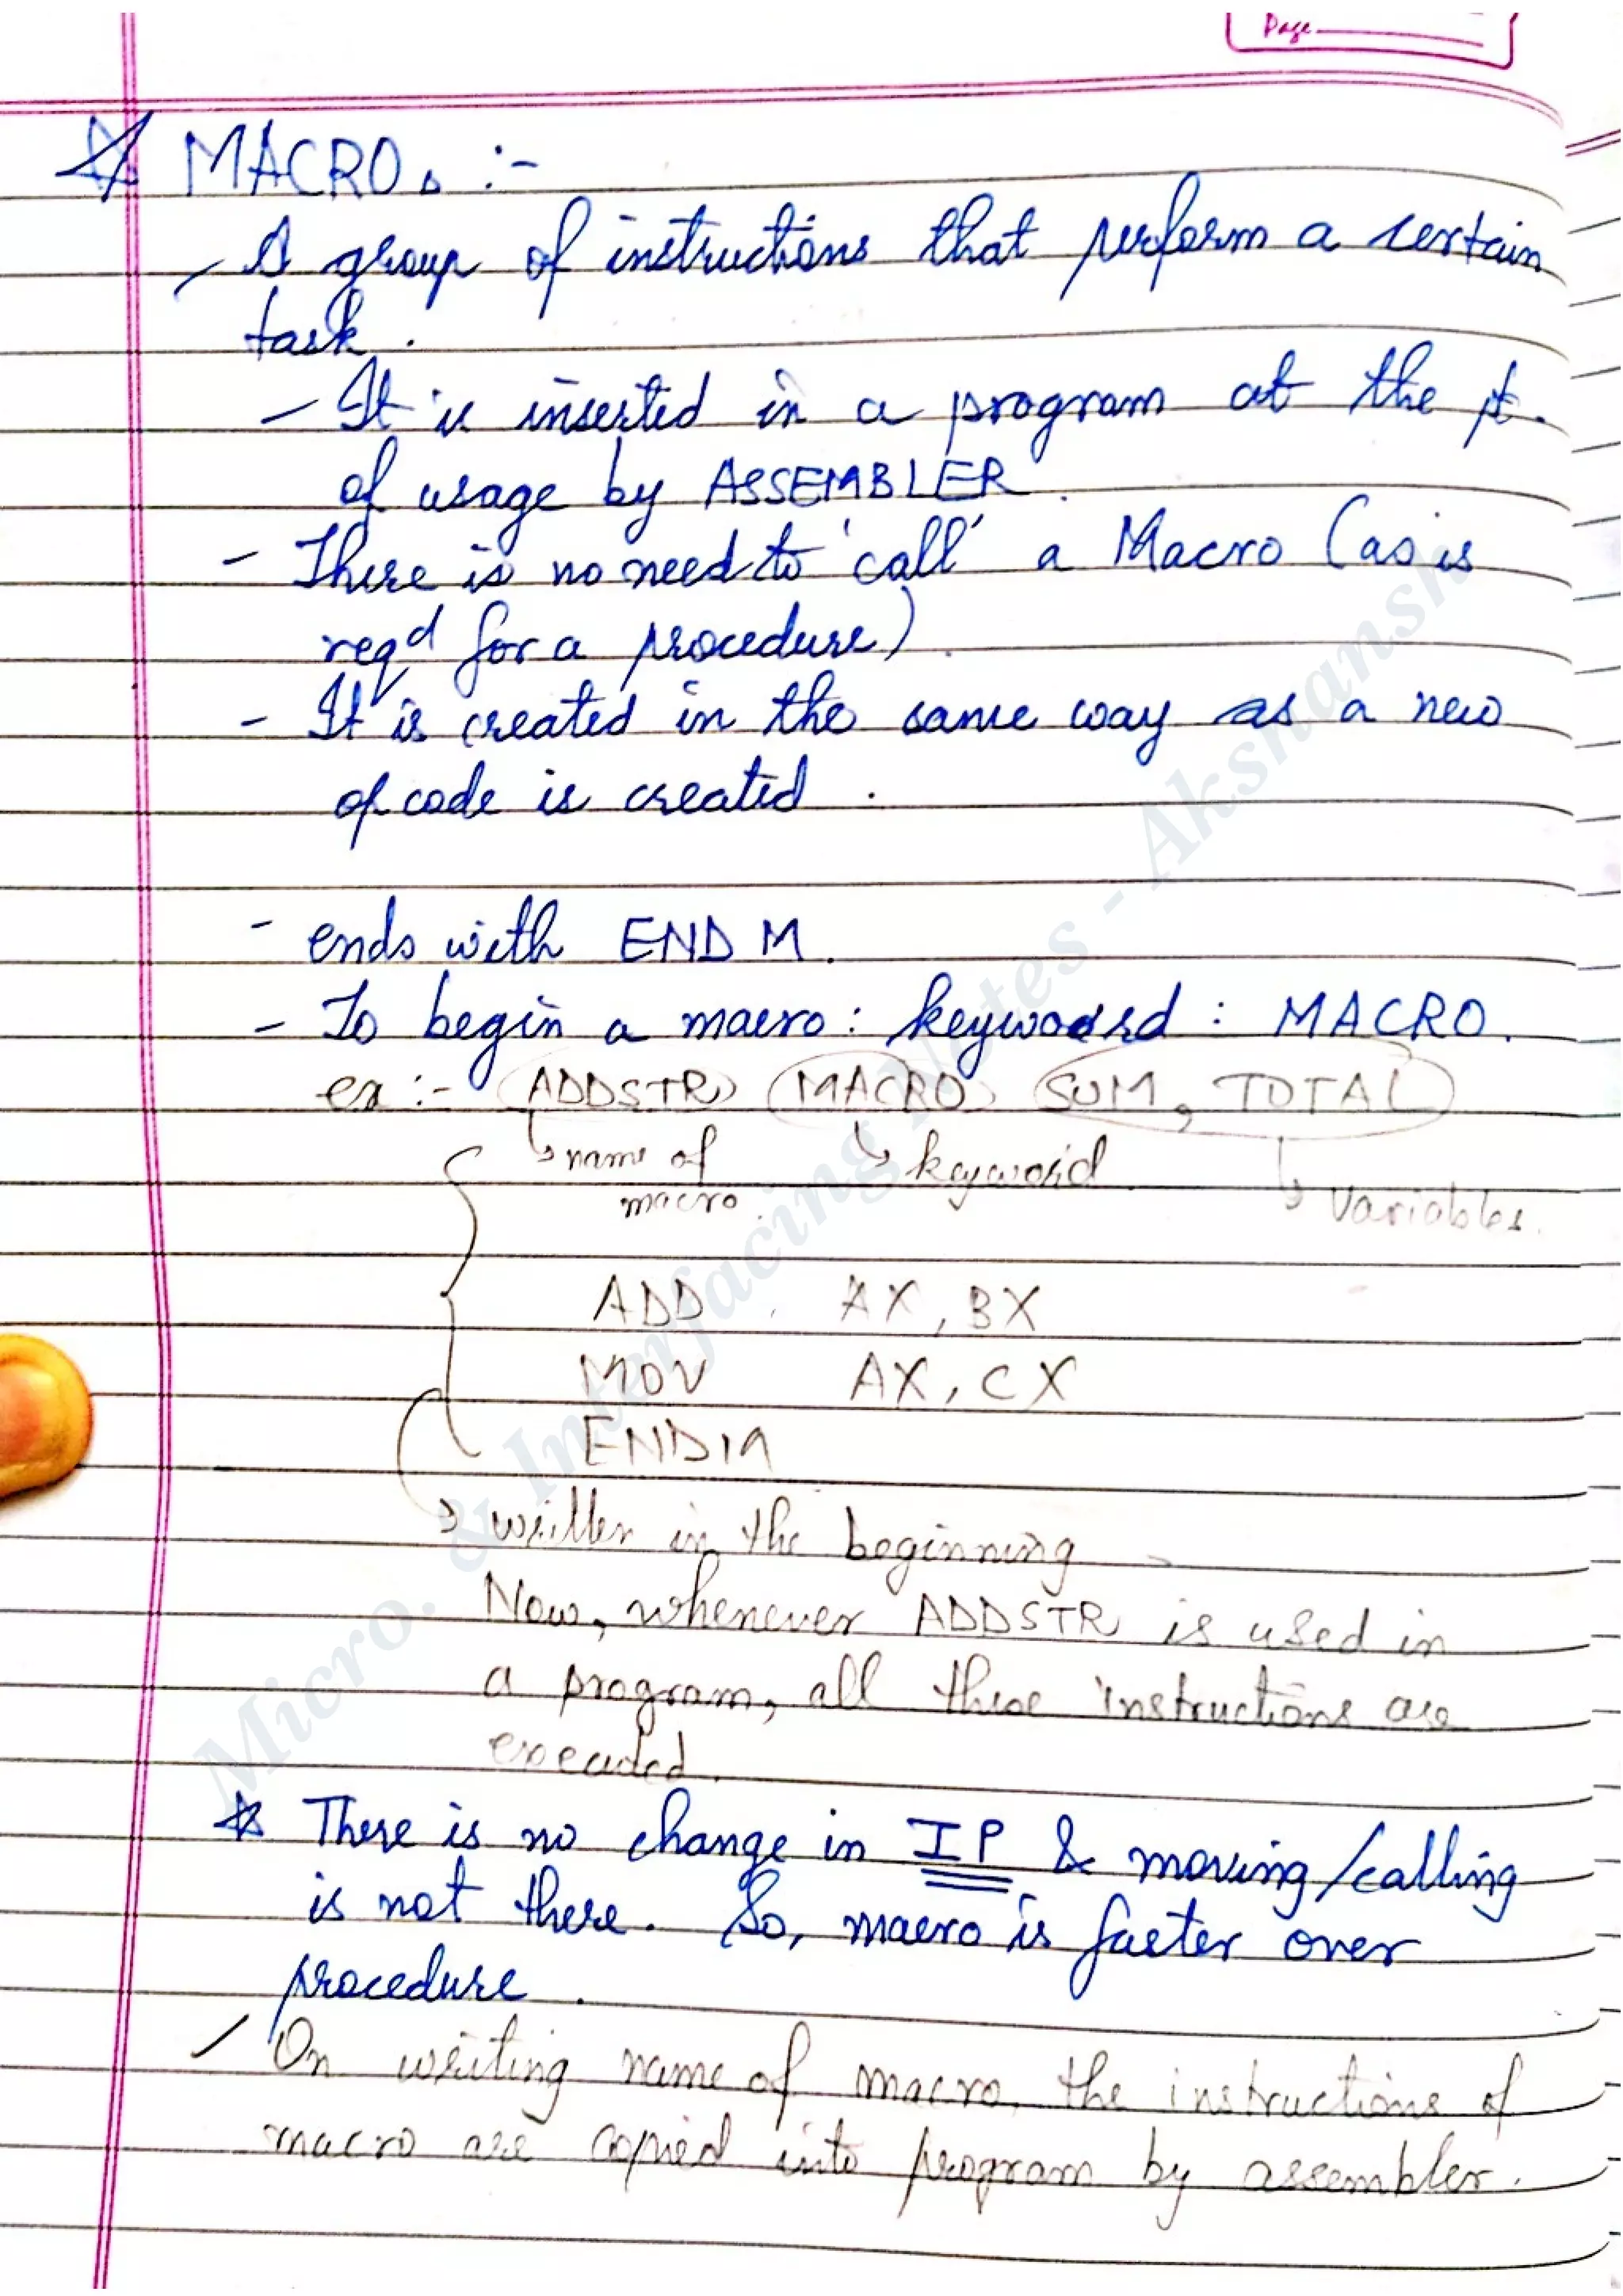 Page
MACROs :-
- A group of instructions that perform a certain
task.
- It is inserted in a program at the pt.
of usage by ASSEMBLER.
- There is no need to 'call' a Macro (as is
reqd for a procedure).
- It is created in the same way as a new
opcode is created.
- ends with ENDM.
- To begin a macro: keyword: MACRO.
ex:- ADDSTR MACRO SUM, TOTAL
name of keyword
macro. variables.
ADD AX, BX
MOV AX, CX
ENDM
written in the beginning
Now, whenever ADDSTR is used in
a program, all these instructions are
executed.
* There is no change in IP & moving/calling
is not there. So, macro is faster over
procedure.
- On writing name of macro, the instructions of
macro are copied into program by assembler.
Micro. & Interfacing Notes - Akshansh